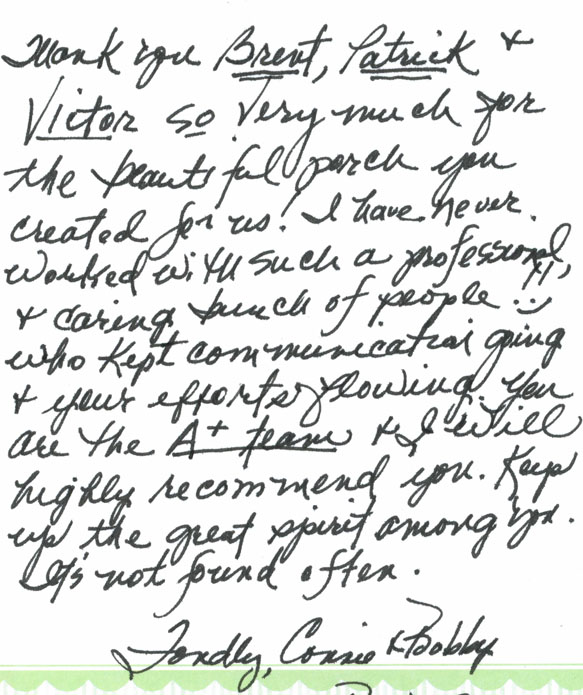 Thank you Brent, Patrick &
Victor so very much for
the beautiful porch you
created for us! I have never
worked with such a professional,
& caring bunch of people!! :)
who kept communication going
& your efforts flowing. You
are the A+ team & I will
highly recommend you. Keep
up the great spirit among you.
It's not found often.
Fondly, Connie & Bobby